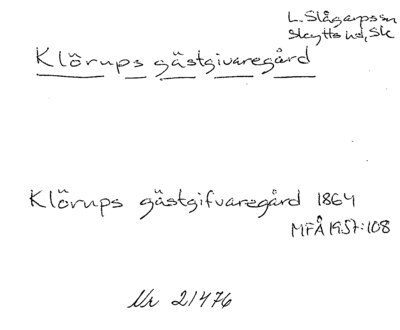 L. Slågarps sn
Skytts hd, Sk
Klörups gästgivaregård
Klörups gästgifvaregård 1864
MFÅ 1957:108
Nr 21476